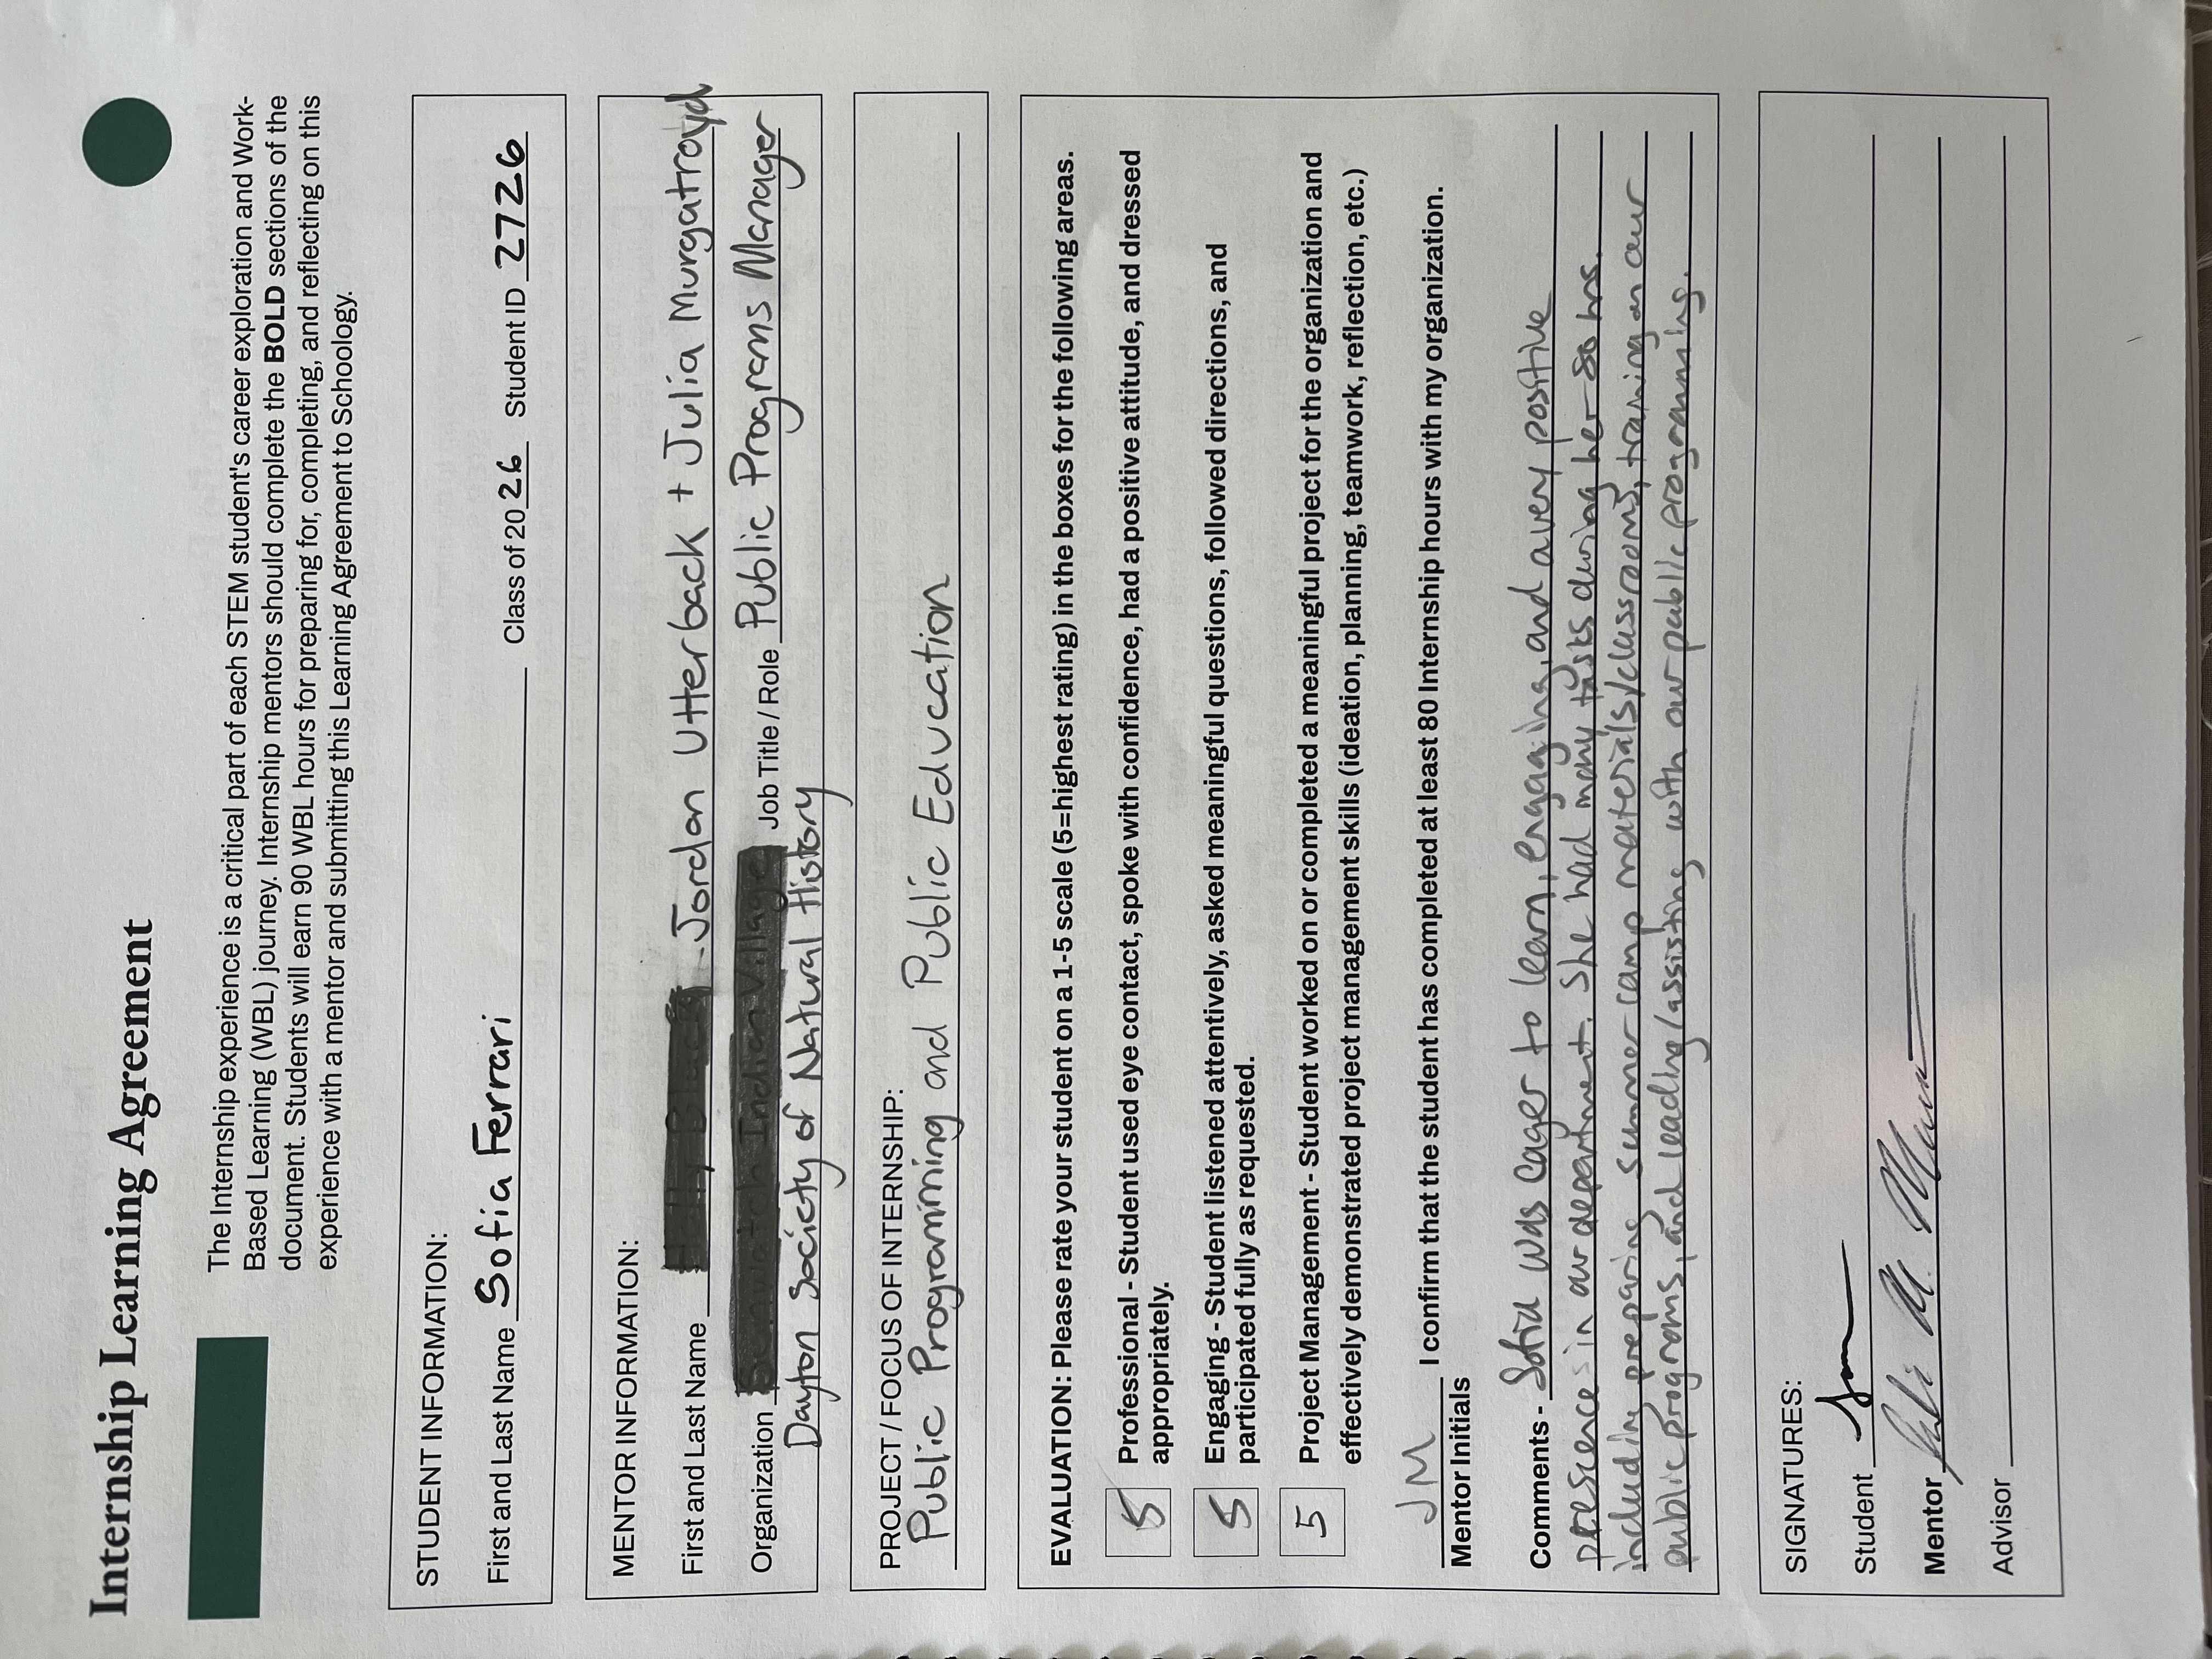 Internship Learning Agreement
The Internship experience is a critical part of each STEM student's career exploration and Work-
Based Learning (WBL) journey. Internship mentors should complete the BOLD sections of the
document. Students will earn 90 WBL hours for preparing for, completing, and reflecting on this
experience with a mentor and submitting this Learning Agreement to Schoology.
STUDENT INFORMATION:
First and Last Name Sofia Ferrari Class of 2026 Student ID 2726
MENTOR INFORMATION:
First and Last Name Jordan Utterback + Julia Murgatroyd
Organization Sunwatch Indian Village Job Title / Role Public Programs Manager
Dayton Society of Natural History
PROJECT / FOCUS OF INTERNSHIP:
Public Programming and Public Education
EVALUATION: Please rate your student on a 1-5 scale (5=highest rating) in the boxes for the following areas.
5 Professional - Student used eye contact, spoke with confidence, had a positive attitude, and dressed
appropriately.
5 Engaging - Student listened attentively, asked meaningful questions, followed directions, and
participated fully as requested.
5 Project Management - Student worked on or completed a meaningful project for the organization and
effectively demonstrated project management skills (ideation, planning, teamwork, reflection, etc.)
JM I confirm that the student has completed at least 80 Internship hours with my organization.
Mentor Initials
Comments - Sofia was eager to learn, engaging, and a very positive
prescence in our department. She had many tasks during her 80 hrs.
including preparing summer camp materials/classrooms, training on our
public programs, and leading/assisting with our public programming.
SIGNATURES:
Student
Mentor
Advisor